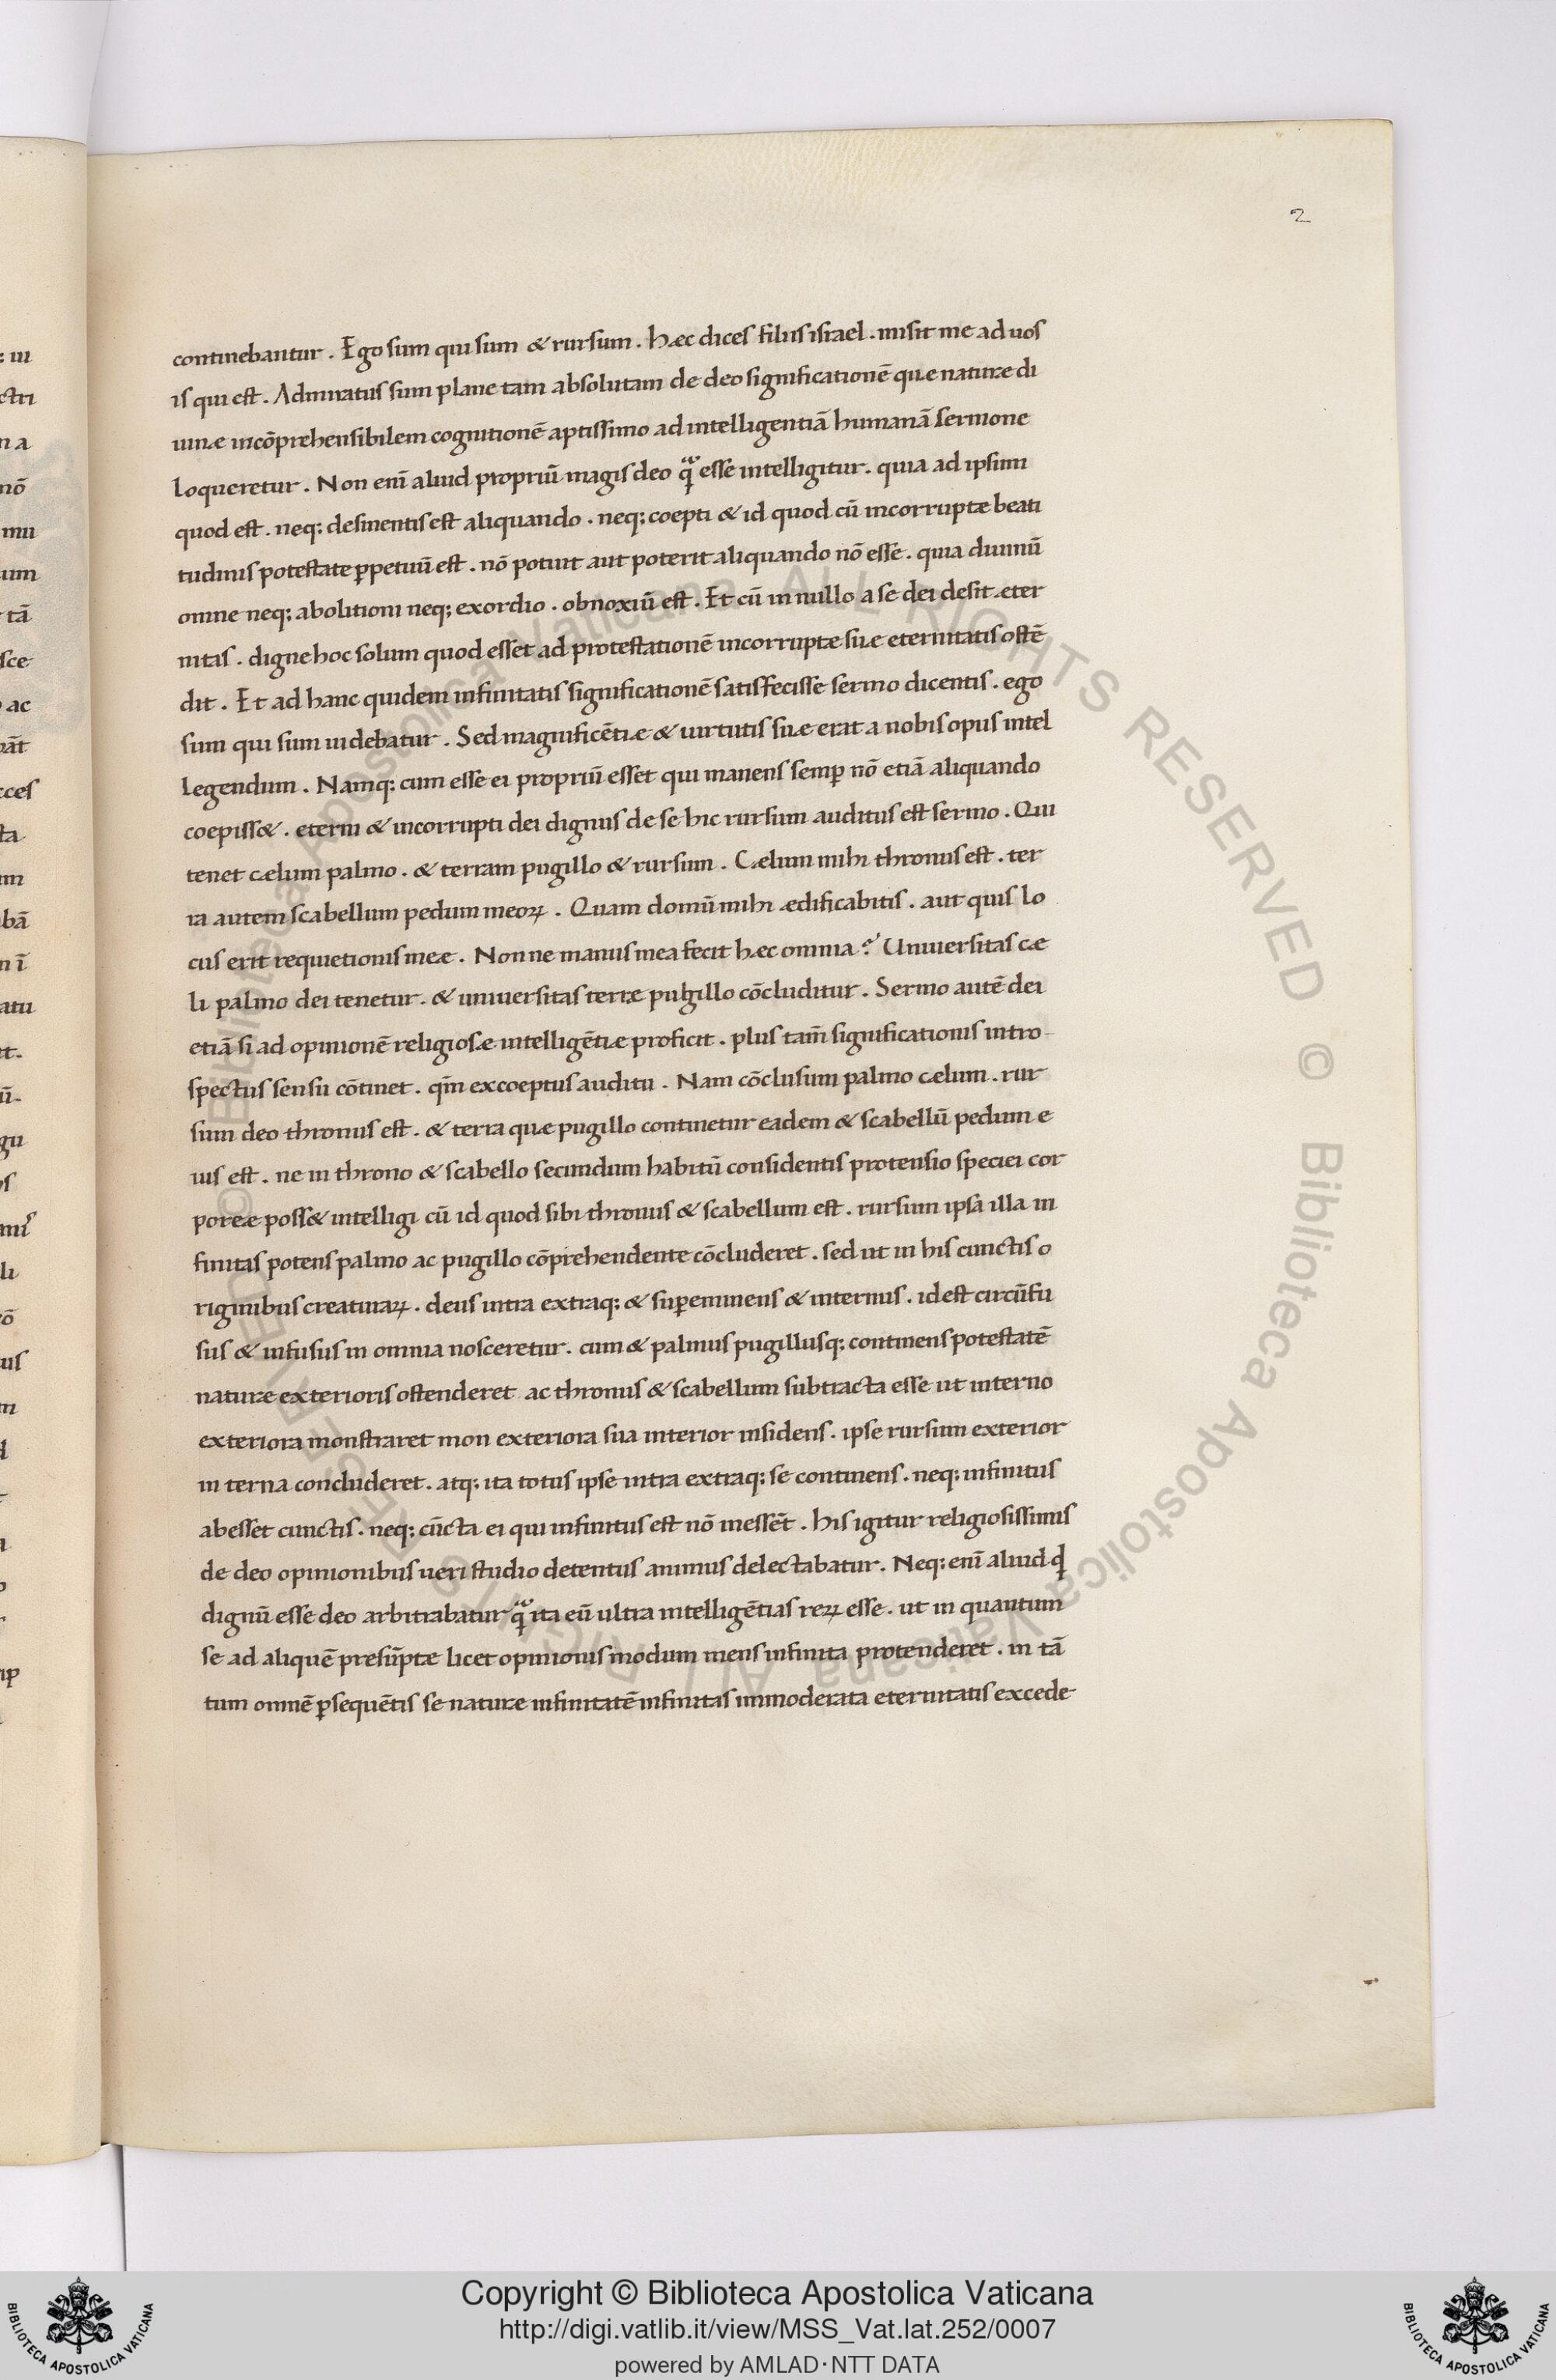 2
continebantur . Ego sum qui sum & rursum . hæc dices filiis israel . misit me ad uos
is qui est . Admiratus sum plane tam absolutam de deo significationē quæ naturæ di
uinæ incōprehensibilem cognitionē aptissimo ad intelligentiā humanā sermone
loqueretur . Non enī aliud propriū magis deo qᷓ esse intelligitur . quia ad ipsum
quod est . neq; desinentis est aliquando . neq; coepti & id quod cū incorruptæ beati
tudinis potestate ꝑpetuū est . nō potuit aut poterit aliquando nō esse . quia diuinū
omne neq; abolitioni neq; exordio . obnoxiū est . Et cū in nullo a se dei desit æter
nitas . digne hoc solum quod esset ad protestationē incorruptæ suæ eternitatis ostē
dit . Et ad hanc quidem infinitatis significationē satisfecisse sermo dicentis . ego
sum qui sum uidebatur . Sed magnificētiæ & uirtutis suæ erat a nobis opus intel
legendum . Namq; cum esse ei propriū esset qui manens semꝑ nō etiā aliquando
coepiss& . eterni & incorrupti dei dignus de se hic rursum auditus est sermo . Qui
tenet cælum palmo . & terram pugillo & rursum . Cælum mihi thronus est . ter
ra autem scabellum pedum meoꝝ . Quam domū mihi ædificabitis . aut quis lo
cus erit requietionis meæ . Non ne manus mea fecit hæc omnia ? Uniuersitas cæ
li palmo dei tenetur . & uniuersitas terræ pugillo cōcluditur . Sermo autē dei
etiā si ad opinionē religiosæ intelligētiæ proficit . plus tam̄ significationis intro-
spectus sensu cōtinet . qm̄ excoeptus auditu . Nam cōclusum palmo cælum . rur
sum deo thronus est . & terra quæ pugillo continetur eadem & scabellū pedum e
ius est . ne in throno & scabello secundum habitū considentis protensio speciei cor
poreæ poss& intelligi cū id quod sibi thronus & scabellum est . rursum ipsa illa in
finitas potens palmo ac pugillo cōprehendente cōcluderet . sed ut in his cunctis o
riginibus creaturaꝝ . deus intra extraq; & suꝑeminens & internus . id est circūfu
sus & infusus in omnia nosceretur . cum & palmus pugillusq; continens potestatē
naturæ exterioris ostenderet ac thronus & scabellum subtracta esse ut interno
exteriora monstraret mon exteriora sua interior insidens . ipse rursum exterior
in terna concluderet . atq; ita totus ipse intra extraq; se continens . neq; infinitus
abesset cunctis . neq; cūcta ei qui infinitus est nō inessēt . his igitur religiosissimis
de deo opinionibus ueri studio detentus animus delectabatur . Neq; enī aliud qđ
dignū esse deo arbitrabatur qᷓ ita eū ultra intelligētias reꝝ esse . ut in quantum
se ad aliquē presūptæ licet opinionis modum mens infinita protenderet . in tā
tum omnē ꝑsequētis se naturæ infinitatē infinitas immoderata eternitatis excede-
Copyright © Biblioteca Apostolica Vaticana
http://digi.vatlib.it/view/MSS_Vat.lat.252/0007
powered by AMLAD·NTT DATA